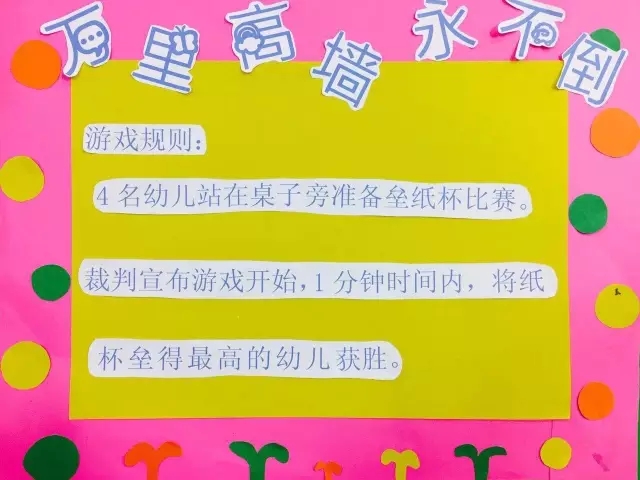 万里高墙永不倒
游戏规则：
4名幼儿站在桌子旁准备垒纸杯比赛。
裁判宣布游戏开始，1分钟时间内，将纸
杯垒得最高的幼儿获胜。